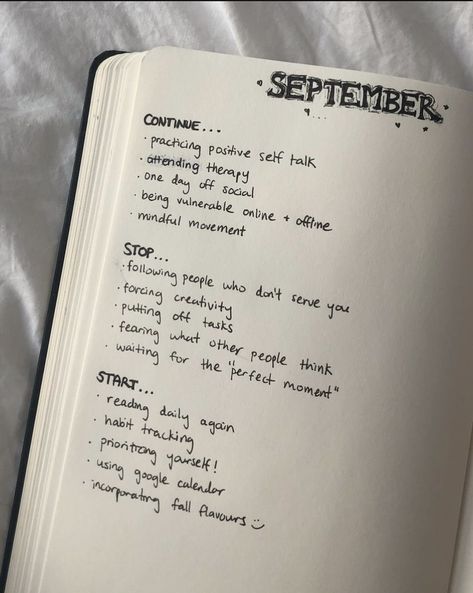 SEPTEMBER
CONTINUE...
· practicing positive self talk
· attending therapy
· one day off social
· being vulnerable online + offline
· mindful movement
STOP...
· following people who don't serve you
· forcing creativity
· putting off tasks
· fearing what other people think
· waiting for the "perfect moment"
START...
· reading daily again
· habit tracking
· prioritizing yourself!
· using google calendar
· incorporating fall flavours :)